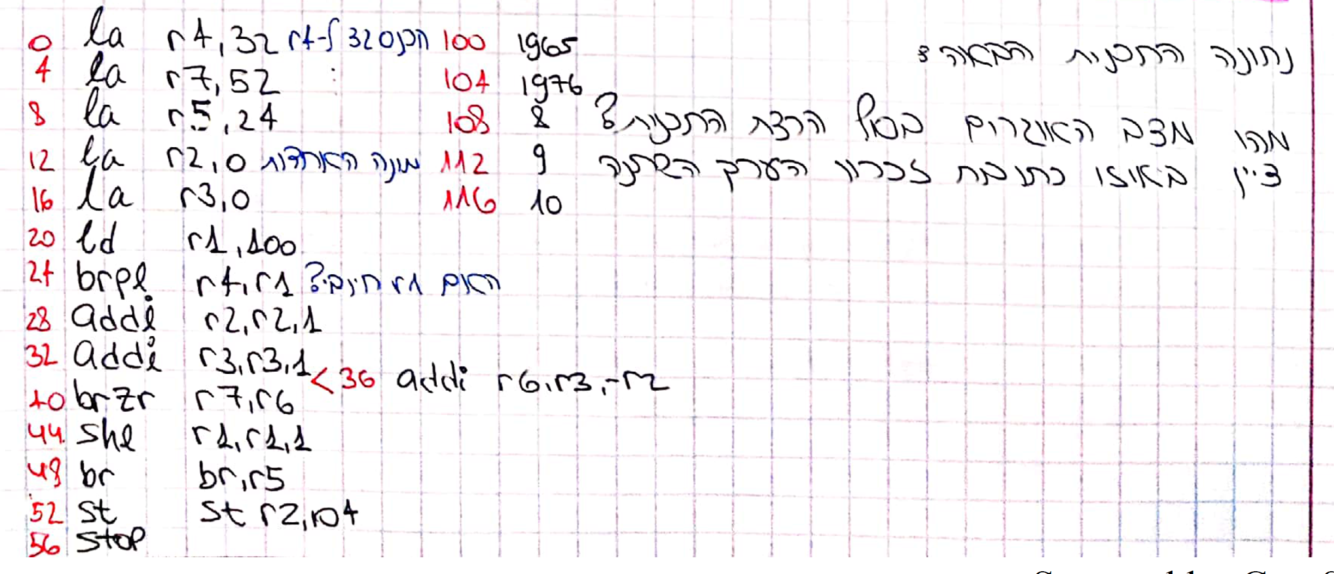 נתונה התכנית הבאה:
0 la r4,32 הכנס 32 ל-r4 100 1965
4 la r7,52 : 104 1976
8 la r5,24 108 8 מהו מצב האוגרים בסוף הרצת התכנית?
12 la r2,0 מונה האחדות 112 9 ציין באיזו כתובת זכרון הערך השתנה
16 la r3,0 116 10
20 ld r1,100
24 brpl r4,r1 האם r1 חיובי?
28 addi r2,r2,1
32 addi r3,r3,1 < 36 addi r6,r3,-r2
40 brzr r7,r6
44 shl r1,r1,1
48 br br,r5
52 st st r2,104
56 stop